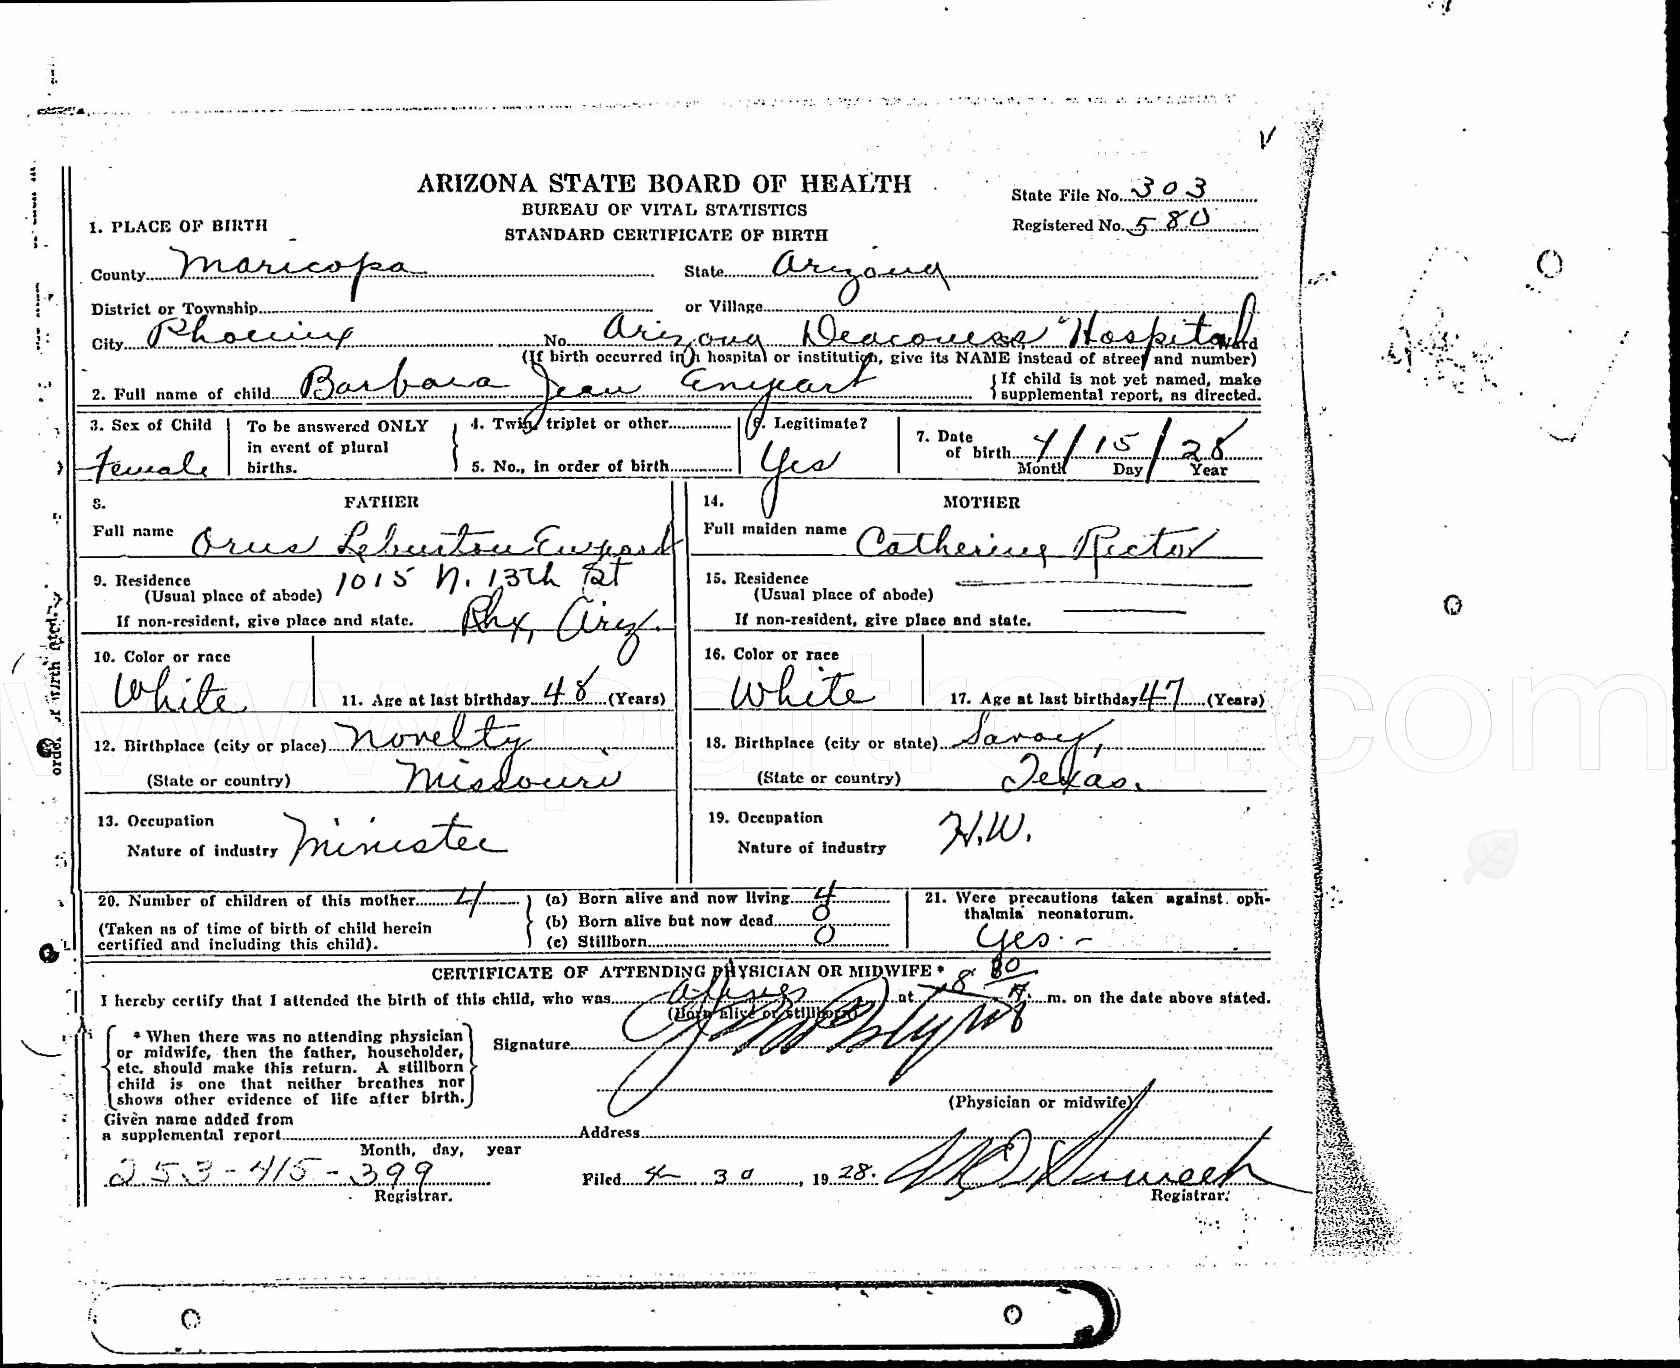 ARIZONA STATE BOARD OF HEALTH
BUREAU OF VITAL STATISTICS
STANDARD CERTIFICATE OF BIRTH
State File No. 303
Registered No. 580
1. PLACE OF BIRTH
County Maricopa State Arizona
District or Township or Village
City Phoenix No. Arizona Deaconess Hospital Ward
(If birth occurred in a hospital or institution, give its NAME instead of street and number)
2. Full name of child Barbara Jean Enyeart { If child is not yet named, make supplemental report, as directed.
3. Sex of Child Female
To be answered ONLY in event of plural births.
4. Twin, triplet or other
5. No., in order of birth
6. Legitimate? Yes
7. Date of birth 4/15/28
Month Day Year
8. FATHER
Full name Orus Enyeart
9. Residence 1015 N. 13th St
(Usual place of abode)
If non-resident, give place and state. Phx, Ariz.
10. Color or race White
11. Age at last birthday 48 (Years)
12. Birthplace (city or place) Novelty
(State or country) Missouri
13. Occupation
Nature of industry Minister
14. MOTHER
Full maiden name Catherine Rector
15. Residence
(Usual place of abode)
If non-resident, give place and state.
16. Color or race White
17. Age at last birthday 47 (Years)
18. Birthplace (city or state) Savoy,
(State or country) Texas.
19. Occupation
Nature of industry H.W.
20. Number of children of this mother 4
(Taken as of time of birth of child herein certified and including this child).
(a) Born alive and now living 4
(b) Born alive but now dead 0
(c) Stillborn 0
21. Were precautions taken against ophthalmia neonatorum.
Yes.-
CERTIFICATE OF ATTENDING PHYSICIAN OR MIDWIFE *
I hereby certify that I attended the birth of this child, who was alive at m. on the date above stated.
(Born alive or stillborn)
* When there was no attending physician
or midwife, then the father, householder,
etc. should make this return. A stillborn
child is one that neither breathes nor
shows other evidence of life after birth.
Signature
(Physician or midwife)
Given name added from
a supplemental report
Month, day, year
Address
253-415-399
Registrar.
Filed 4 30, 1928.
Registrar.
www.paltron.com